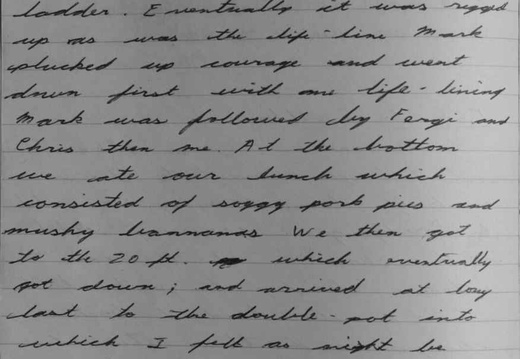 ladder. Eventually it was rigged
up as was the life-line Mark
plucked up courage and went
down first with me life-lining
Mark was followed by Fergi and
Chris then me. At the bottom
we ate our lunch which
consisted of soggy pork pies and
mushy bannanas We then got
to the 20 ft. which eventually
got down; and arrived at long
last to the double-pot into
which I fell as might be